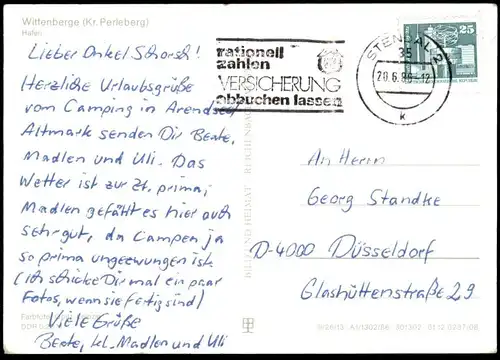 Wittenberge (Kr. Perleberg)
Hafen
Lieber Onkel Schorsch!
Herzliche Urlaubsgrüße
vom Camping in Arendsee/
Altmark senden Dir Beate,
Madlen und Uli. Das
Wetter ist zur Zt. prima,
Madlen gefällt es hier auch
sehr gut, da Campen ja
so prima ungezwungen ist.
(ich schicke Dir mal ein paar
Fotos, wenn sie fertig sind)
Viele Grüße
Beate, kl. Madlen und Uli
rationell
zahlen
VERSICHERUNG
abbuchen lassen
STENDAL 2
35
20.6.88-12
k
25
BILD UND HEIMAT REICHENBACH
An Herrn
Georg Standke
D-4000 Düsseldorf
Glashüttenstraße 29